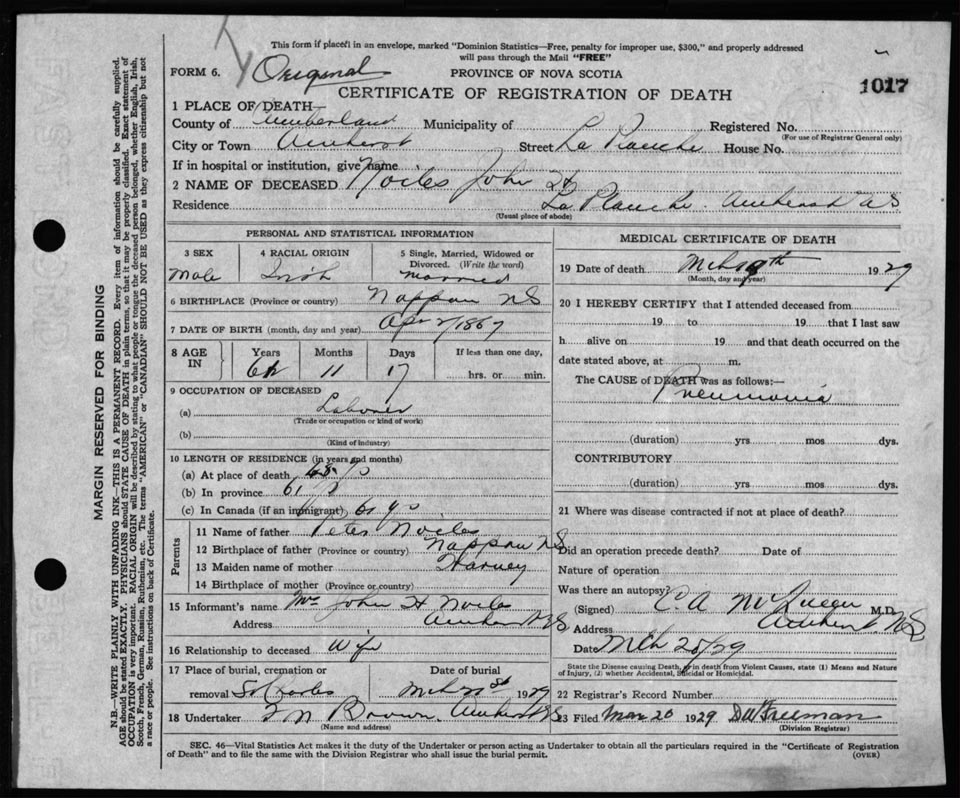 This form if placed in an envelope, marked "Dominion Statistics—Free, penalty for improper use, $300," and properly addressed
will pass through the Mail "FREE"
FORM 6. Original PROVINCE OF NOVA SCOTIA
CERTIFICATE OF REGISTRATION OF DEATH 1017
1 PLACE OF DEATH—
County of Cumberland Municipality of Registered No.
(For use of Registrar General only)
City or Town Amherst Street La Planche House No.
If in hospital or institution, give name
2 NAME OF DECEASED Noiles John H
Residence La Planche Amherst NS
(Usual place of abode)
PERSONAL AND STATISTICAL INFORMATION
3 SEX 4 RACIAL ORIGIN 5 Single, Married, Widowed or
Divorced. (Write the word)
Male Irish Married
6 BIRTHPLACE (Province or country) Nappan NS
7 DATE OF BIRTH (month, day and year) Apr 2/1867
8 AGE IN Years Months Days If less than one day,
61 11 17 hrs. or min.
9 OCCUPATION OF DECEASED
(a) Laborer
(Trade or occupation or kind of work)
(b)
(Kind of industry)
10 LENGTH OF RESIDENCE (in years and months)
(a) At place of death
(b) In province 61
(c) In Canada (if an immigrant) 61 ys
Parents
11 Name of father Peter Noiles
12 Birthplace of father (Province or country) Nappan NS
13 Maiden name of mother Harvey
14 Birthplace of mother (Province or country)
15 Informant's name Mrs John H Noiles
Address Amherst NS
16 Relationship to deceased Wife
17 Place of burial, cremation or Date of burial
removal St Charles Mch 21st 1929
18 Undertaker Brown Amherst NS
(Name and address)
MEDICAL CERTIFICATE OF DEATH
19 Date of death Mch 19th 1929
(Month, day and year)
20 I HEREBY CERTIFY that I attended deceased from
19 to 19 that I last saw
h alive on 19 and that death occurred on the
date stated above, at m.
The CAUSE of DEATH was as follows:—
Pneumonia
(duration) yrs mos dys.
CONTRIBUTORY
(duration) yrs mos dys.
21 Where was disease contracted if not at place of death?
Did an operation precede death? Date of
Nature of operation
Was there an autopsy?
(Signed) C. A McQueen M.D.
Address Amherst NS
Date Mch 20/29
State the Disease causing Death, or in death from Violent Causes, state (1) Means and Nature
of Injury, (2) whether Accidental, Suicidal or Homicidal.
22 Registrar's Record Number
23 Filed Mar 20 1929 Freeman
(Division Registrar)
SEC. 46—Vital Statistics Act makes it the duty of the Undertaker or person acting as Undertaker to obtain all the particulars required in the "Certificate of Registration
of Death" and to file the same with the Division Registrar who shall issue the burial permit. (OVER)
MARGIN RESERVED FOR BINDING
N.B.—WRITE PLAINLY WITH UNFADING INK—THIS IS A PERMANENT RECORD. Every item of information should be carefully supplied.
AGE should be stated EXACTLY. PHYSICIANS should STATE CAUSE OF DEATH in plain terms, so that it may be properly classified. Exact statement of
OCCUPATION is very important. RACIAL ORIGIN will be described by stating to what people or tongue the deceased person belonged, whether English, Irish,
Scotch, French, German, Russian, Ruthenian, etc. The terms "AMERICAN" or "CANADIAN" SHOULD NOT BE USED as they express citizenship but not
a race or people. See instructions on back of Certificate.